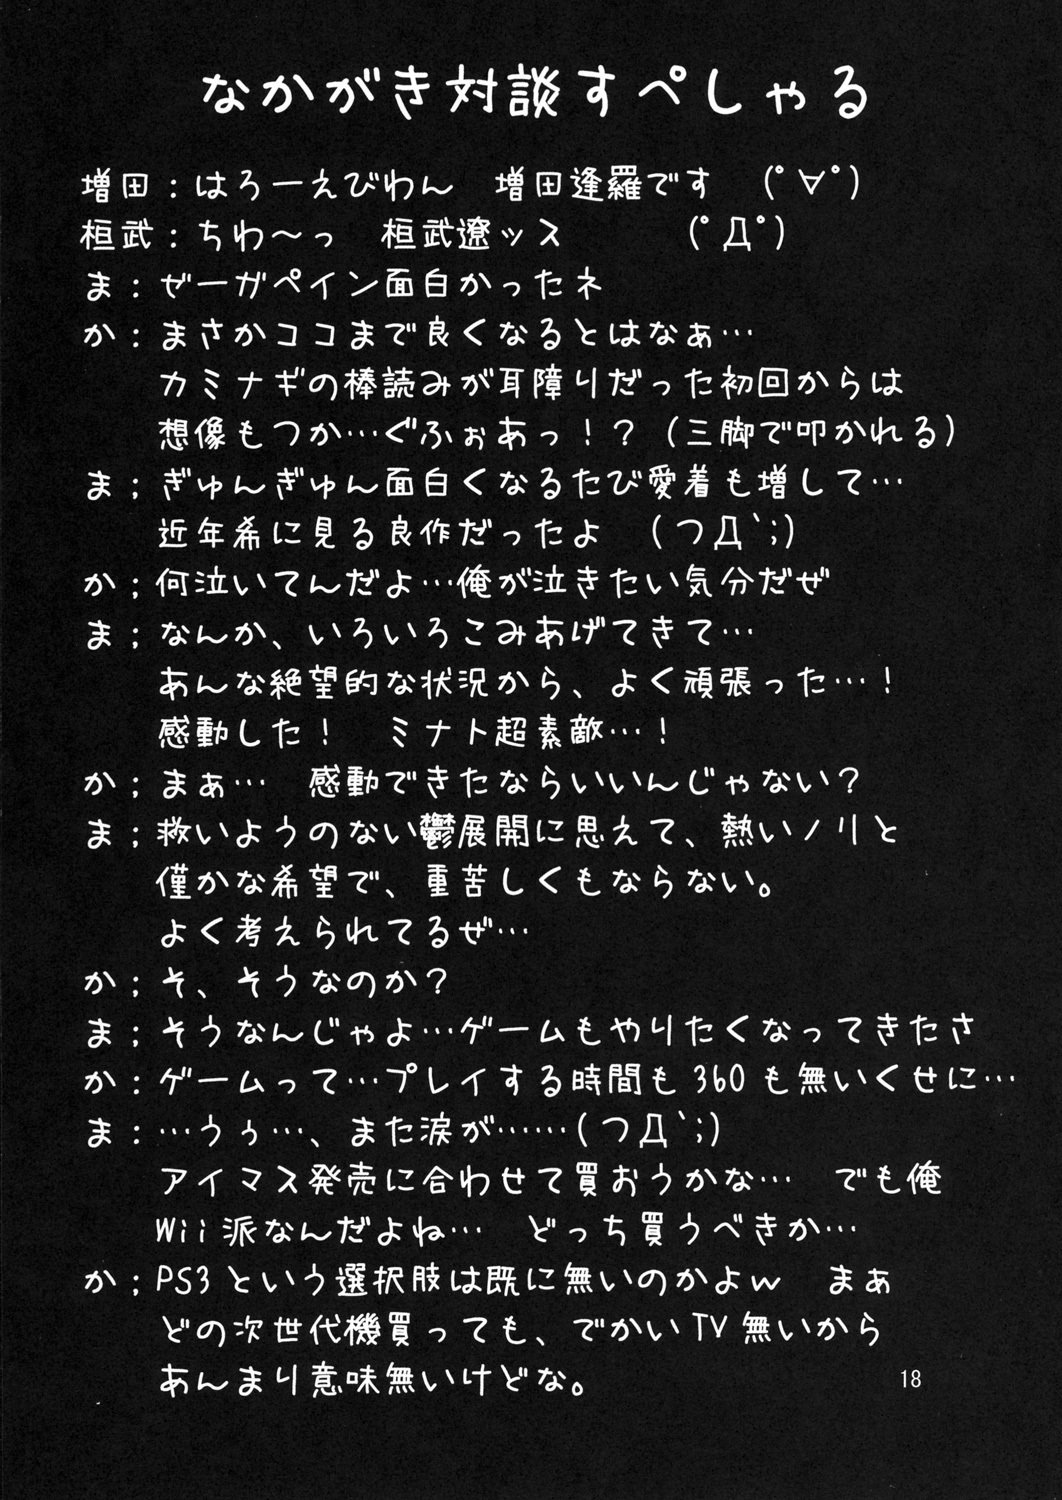 なかがき対談すぺしゃる
増田：はろーえびわん　増田逢羅です　(ﾟ∀ﾟ)
桓武：ちわ～っ　桓武遼ッス　(ﾟДﾟ)
ま：ゼーガペイン面白かったネ
か：まさかココまで良くなるとはなぁ…
カミナギの棒読みが耳障りだった初回からは
想像もつか…ぐふぉあっ！？（三脚で叩かれる）
ま；ぎゅんぎゅん面白くなるたび愛着も増して…
近年希に見る良作だったよ　(つД`;)
か；何泣いてんだよ…俺が泣きたい気分だぜ
ま；なんか、いろいろこみあげてきて…
あんな絶望的な状況から、よく頑張った…！
感動した！　ミナト超素敵…！
か；まぁ…　感動できたならいいんじゃない？
ま；救いようのない鬱展開に思えて、熱いノリと
僅かな希望で、重苦しくもならない。
よく考えられてるぜ…
か；そ、そうなのか？
ま；そうなんじゃよ…ゲームもやりたくなってきたさ
か：ゲームって…プレイする時間も360も無いくせに…
ま：…うぅ…、また涙が……(つД`;)
アイマス発売に合わせて買おうかな…　でも俺
Wii派なんだよね…　どっち買うべきか…
か；PS3という選択肢は既に無いのかよw　まぁ
どの次世代機買っても、でかいTV無いから
あんまり意味無いけどな。
18